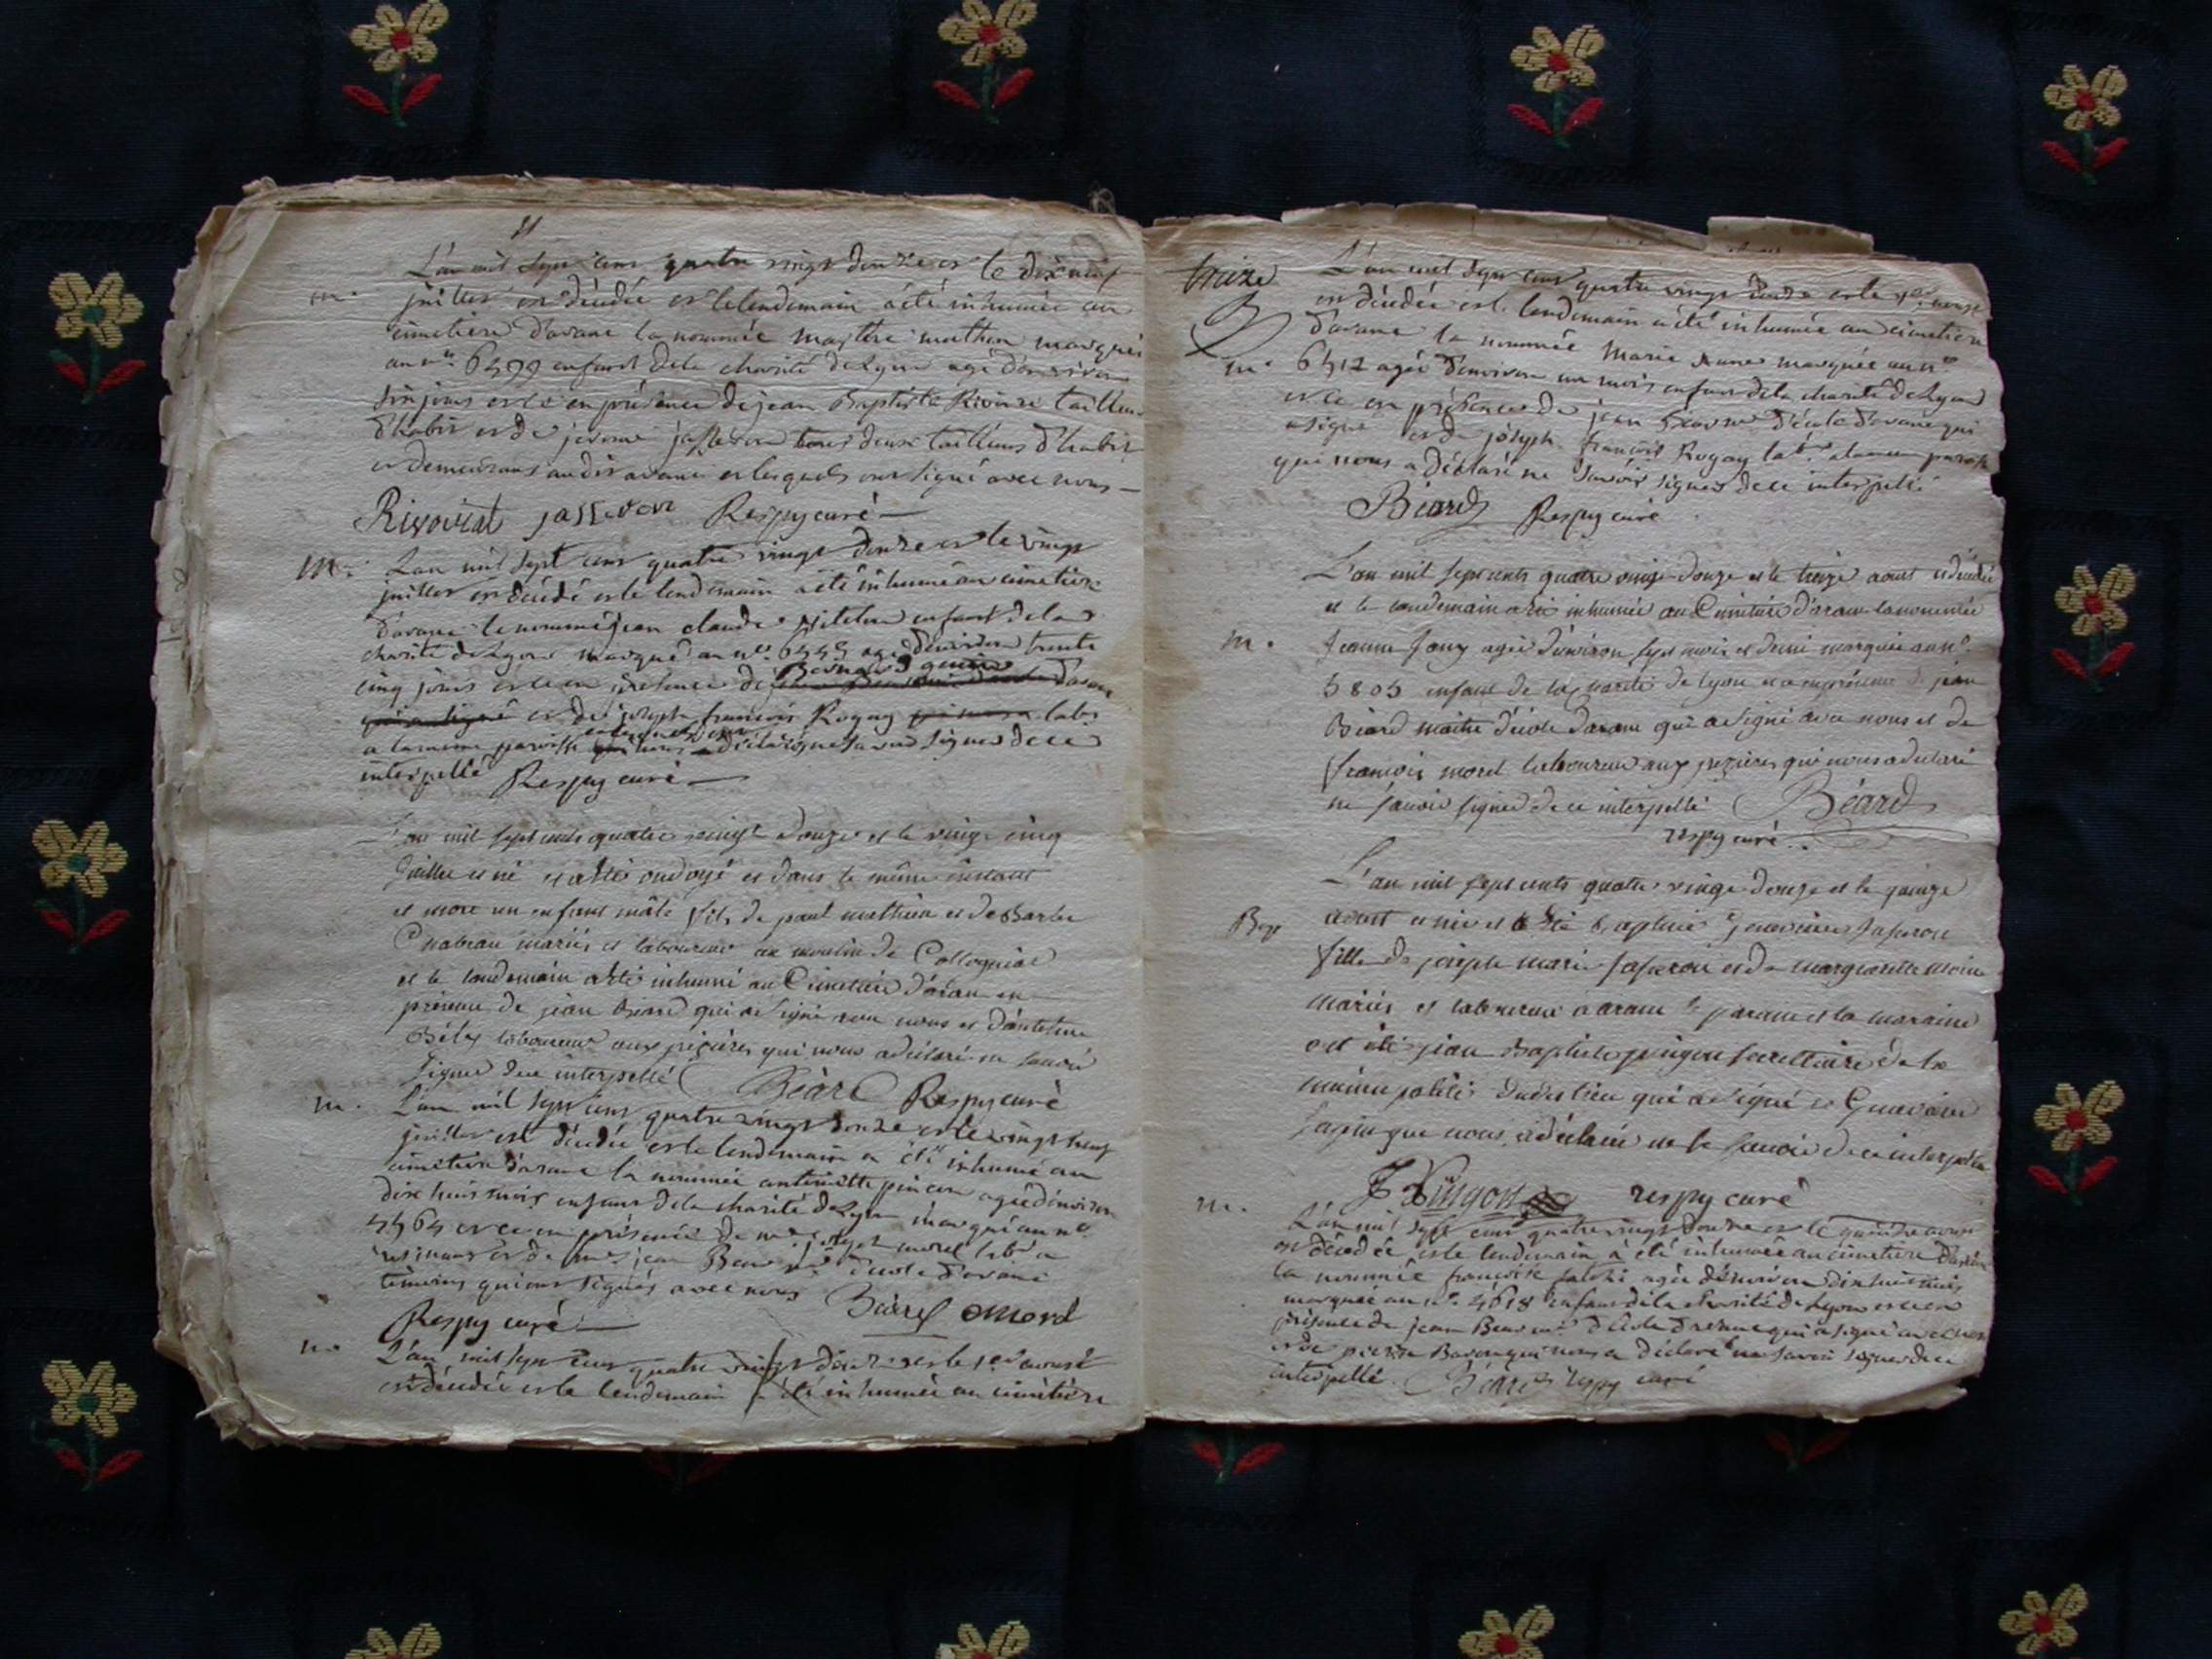 L'an mil sept cens quatre vingt douze et le dix neuf
m. juillet est décédée et le lendemain a été inhumée au
cimetiere d'arane la nommée marthe mathon marquée
au n.° 6499 enfant de la charité de Lyon agé d'environ
six jours et ce en présence de jean Baptiste Rivoire tailleur
d'habit et de jerome jasseron tous deux tailleurs d'habit
et demeurans audit arane et lesquels ont signé avec nous
Rivoirat jasseron Respy curé
m. L'an mil sept cens quatre vingt douze et le vingt
juillet est décédé et le lendemain a été inhumé au cimetiere
d'arane le nommé jean claude enfant de la
charité de Lyon marqué au n.° 6445 agé d'environ trente
cinq jours et ce en présence de d'arane
et de joseph françois Rogay lab.r
a la meme paroisse declaré ne savoir signer de ce
interpellé Respy curé
L'an mil sept cents quatre vingt douze et le vingt cinq
juillet est né et a été ondoyé et dans le même instant
et mort un enfant mâle fils de paul mathieu et de Barbe
Chabeau mariés et laboureur au moulin de Collognat
et le landemain a été inhumé au Cimetiere d'arane en
présence de jean Béard qui a signé avec nous et d'antelme
laboureur aux pézieres qui nous a déclaré ne savoir
signer de ce interpellé Béard Respy curé
m. L'an mil sept cens quatre vingt douze et le vingt neuf
juillet est décédée et le lendemain a été inhumé au
cimetiere d'arane la nommée antoinette pincon agée d'environ
dix huit mois enfant de la charité de Lyon marqué au n.°
4564 et ce en présence de joseph morel lab.r a
et de jean Bear d'école d'arane
témoins qui ont signés avec nous Béard Morel
Respy curé
m. L'an mil sept cens quatre vingt douze et le 1er aoust
est décédée et le lendemain a été inhumée au cimetiere
treize
L'an mil sept cens quatre vingt douze et le
est décédée et le lendemain a été inhumée au cimetiere
d'arane la nommée Marie Anne marquée au n.°
m. 6412 agée d'environ un mois enfant de la charité de Lyon
et ce en présence de jean d'école d'arane qui
a signé et de joseph françois Rogay lab.r a la meme paroisse
qui nous a déclaré ne savoir signer de ce interpellé
Béard Respy curé
L'an mil sept cents quatre vingt douze et le treize aoust est décédée
et le landemain a été inhumée au Cimetiere d'arane la nommée
m. Jeanne agée d'environ sept mois et demi marquée au n.°
5805 enfant de la charité de lyon et ce en présence de jean
Béard maitre d'école d'arane qui a signé avec nous et de
francois morel laboureur aux pezieres qui nous a declaré
ne savoir signer de ce interpellé Béard
respy curé
L'an mil sept cents quatre vingt douze et le quinze
Bap aoust est née et a été baptisée Genevieve Jaseron
fille de joseph marie Jaseron et de marguerite moine
mariés et laboureur a arane le parain et la maraine
ont été jean Baptiste pingon secrettaire de la
municipalité dudit lieu qui a signé et Genevieve
sapin qui nous a déclaré ne le savoir de ce interpellée
Pingon respy curé
m. L'an mil sept cens quatre vingt douze et le quinze aoust
est décédée et le lendemain a été inhumée au cimetiere d'arane
la nommée françoise agée d'environ dix huit mois
marquée au n.° 4618 enfant de la charité de Lyon et ce en
présence de jean Bear m.e d'école d'arane qui a signé avec nous
et de pierre Baron qui nous a déclaré ne savoir signer de ce
interpellé. Béard respy curé